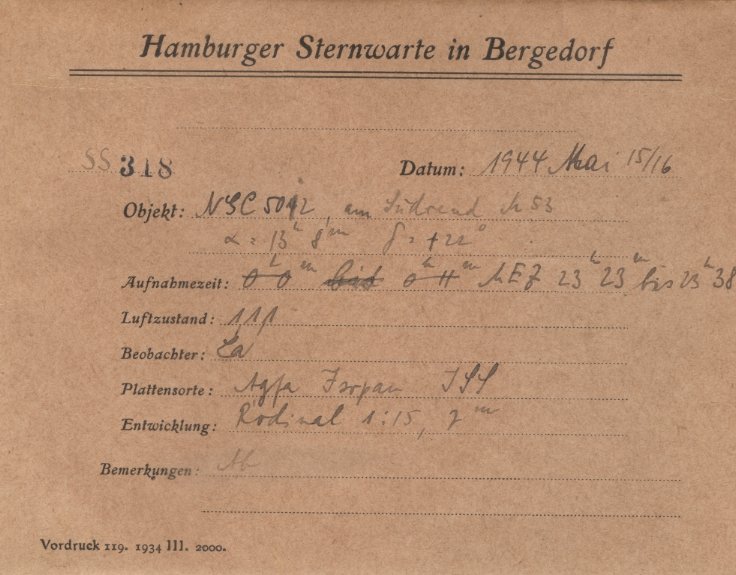 Hamburger Sternwarte in Bergedorf
SS 318
Datum: 1944 Mai 15/16
Objekt: NGC 5012, am Südrand M 53
α = 13h 8m δ = +22°
Aufnahmezeit: 0h 0m bis 0h 11m MEZ 23h 23m bis 23h 38
Luftzustand: 111
Beobachter: La
Plattensorte: Agfa Isopan ISS
Entwicklung: Rodinal 1:15, 7m
Bemerkungen:
Vordruck 119. 1934 III. 2000.